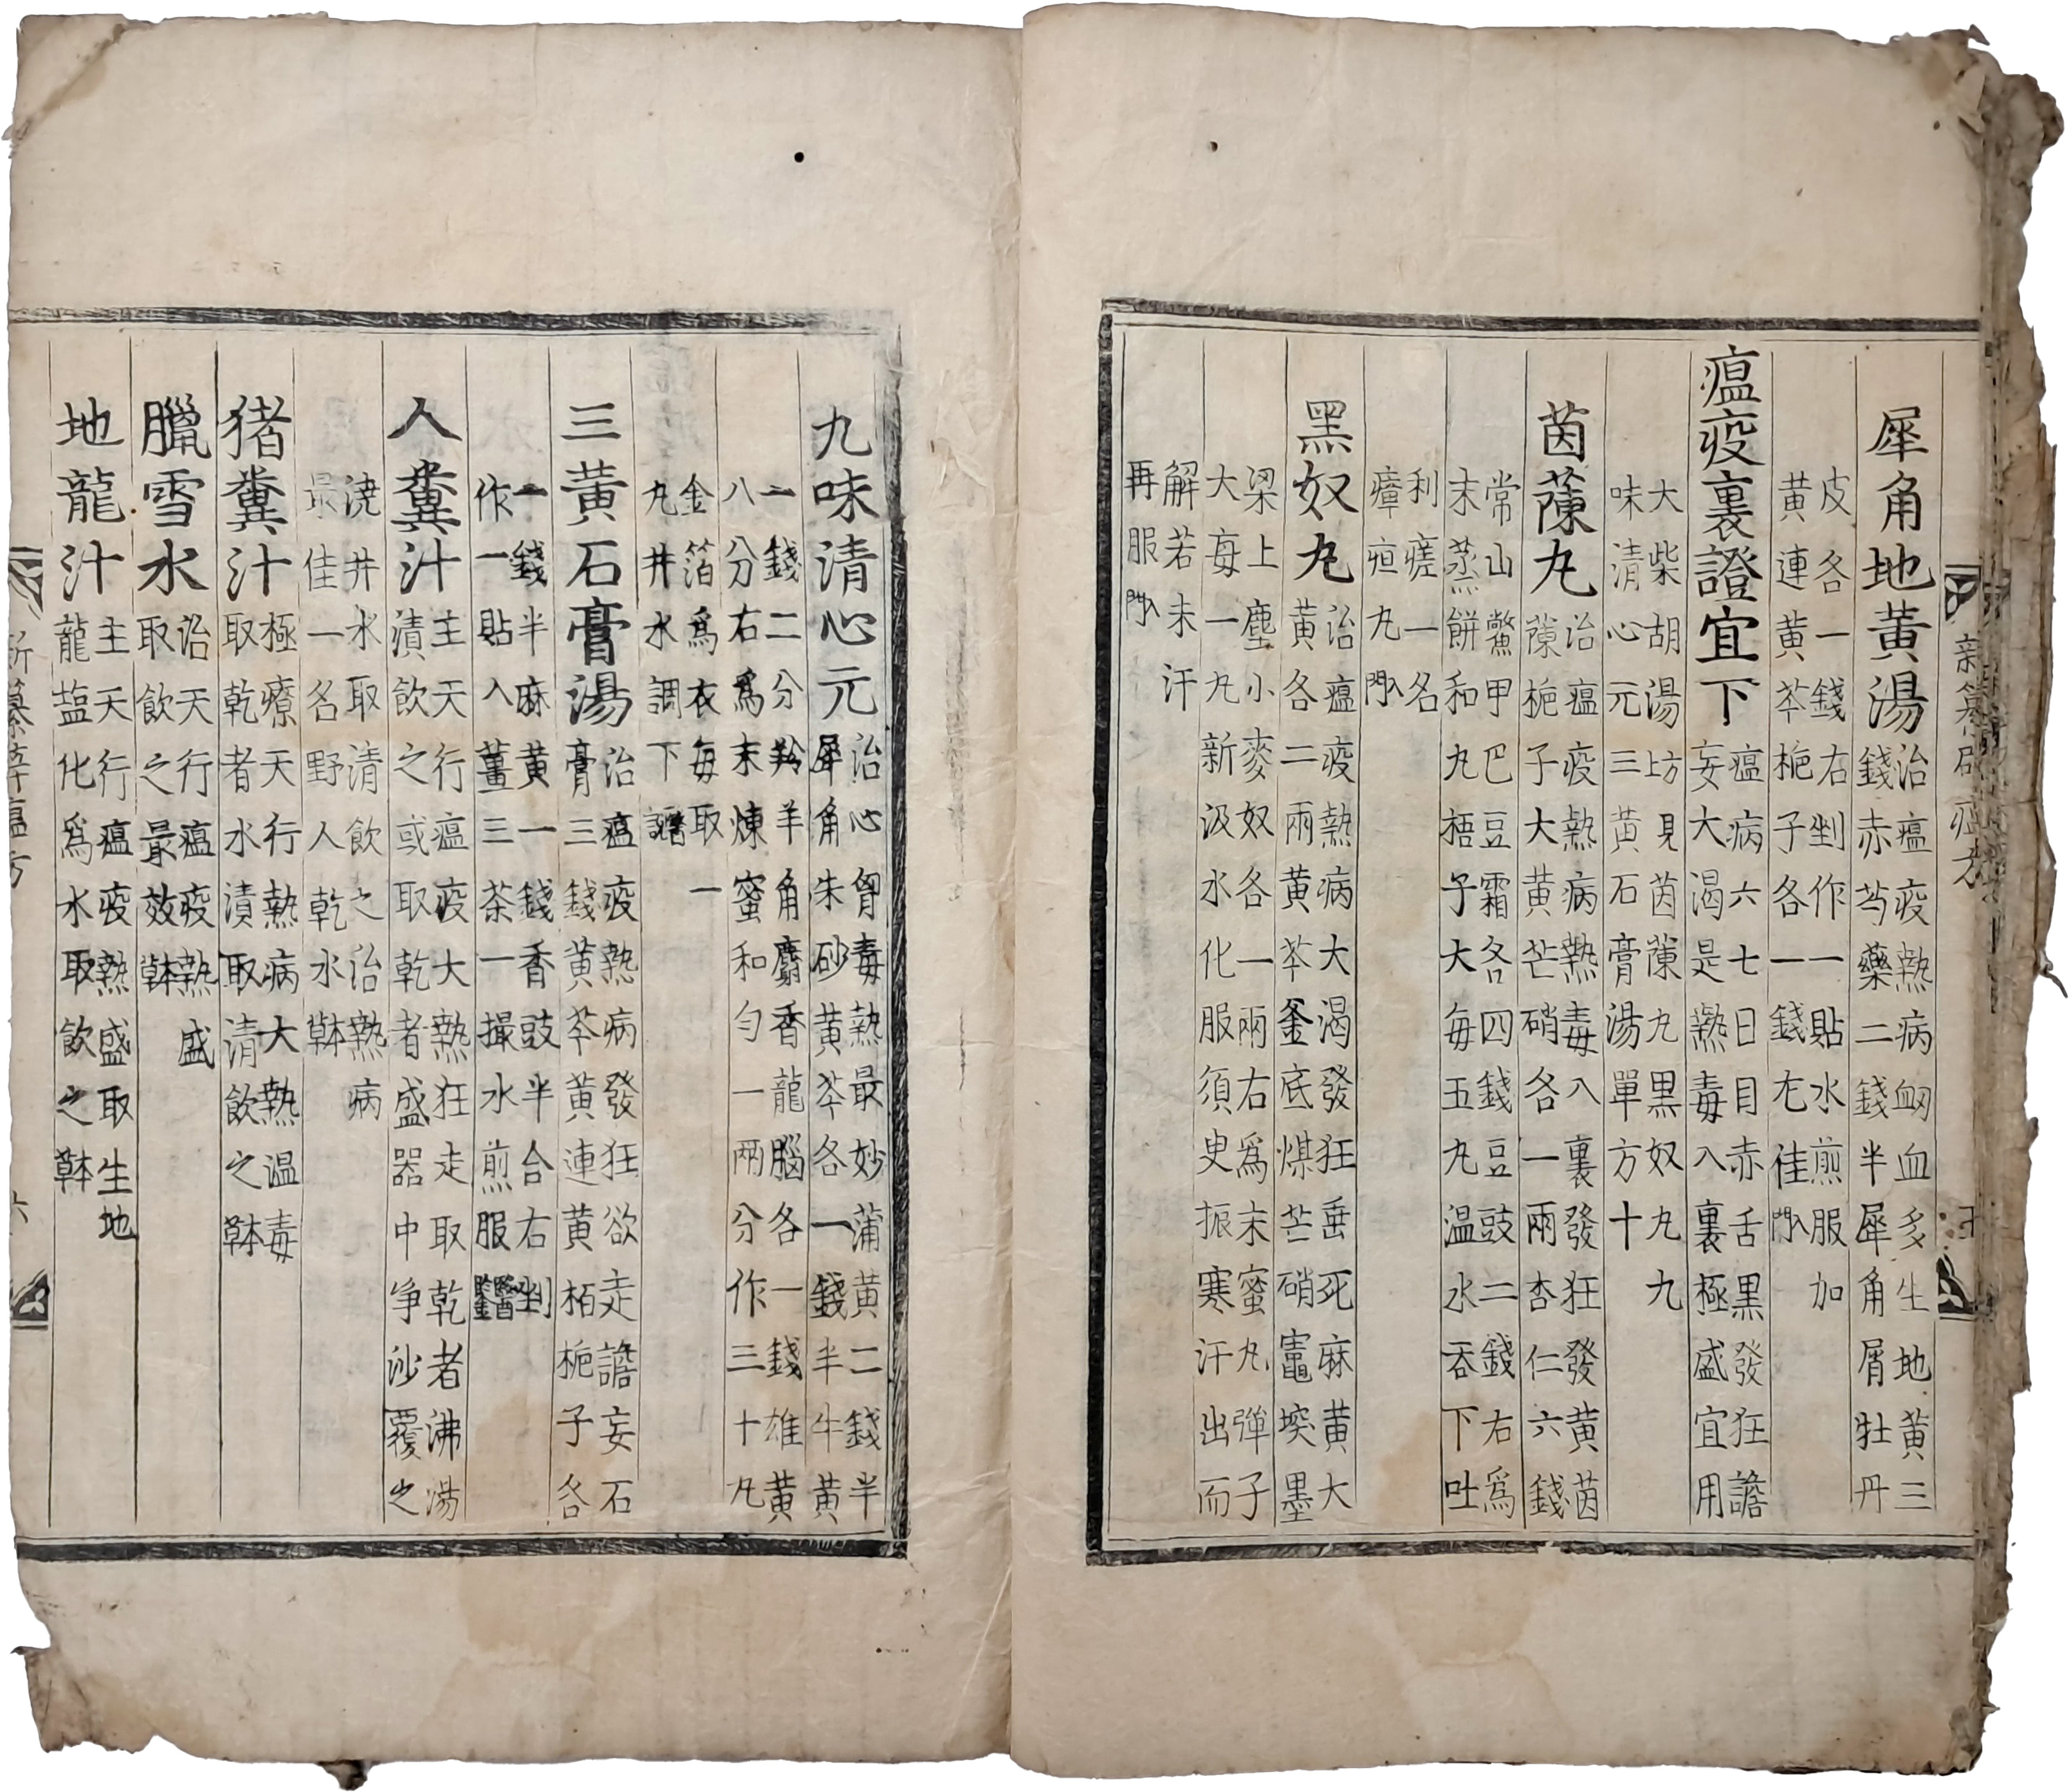 新纂辟瘟方
犀角地黃湯
治瘟疫熱病衂血多生地黄三
錢赤芍藥二錢半犀角屑牡丹
皮各一錢右剉作一貼水煎服加
黄連黄芩梔子各一錢尢佳入門
瘟疫裏證宜下
瘟病六七日目赤舌黒發狂譫
妄大渴是熱毒入裏極盛宜用
大柴胡湯方見上茵蔯丸黒奴丸九
味清心元三黄石膏湯單方十
茵蔯丸
治瘟疫熱病熱毒入裏發狂發黄茵
蔯梔子大黄芒硝各一兩杏仁六錢
常山鱉甲巴豆霜各四錢豆豉二錢右爲
末蒸餅和丸梧子大每五丸温水吞下吐
利瘥一名
瘴疸丸入門
黑奴丸
治瘟疫熱病大渴發狂垂死麻黄大
黄各二兩黄芩釜底煤芒硝竈堗墨
梁上塵小麥奴各一兩右爲末蜜丸彈子
大每一丸新汲水化服須臾振寒汗出而
解若未汗
再服入門
九味清心元
治心胷毒熱最妙蒲黄二錢半
犀角朱砂黄芩各一錢半牛黄
一錢二分羚羊角麝香龍腦各一錢雄黄
八分右爲末煉蜜和勻一兩分作三十丸
金箔爲衣每取一
丸井水調下
三黄石膏湯
治瘟疫熱病發狂欲走譫妄石
膏三錢黄芩黄連黄栢梔子各
一錢半麻黄一錢香豉半合右剉
作一貼入薑三茶一撮水煎服醫鑑
人糞汁
主天行瘟疫大熱狂走取乾者沸湯
漬飲之或取乾者盛器中净沙覆之
澆井水取清飲之治熱病
最佳一名野人乾水本草
猪糞汁
極療天行熱病大熱温毒
取乾者水漬取清飲之本草
臘雪水
治天行瘟疫熱盛
取飲之最效本草
地龍汁
主天行瘟疫熱盛取生地
龍塩化爲水取飲之本草
新纂辟瘟方 六